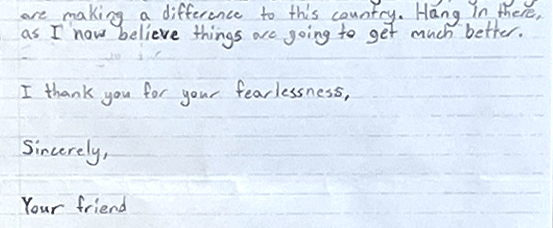 are making a difference to this country. Hang in there,
as I now believe things are going to get much better.
I thank you for your fearlessness,
Sincerely,
Your friend